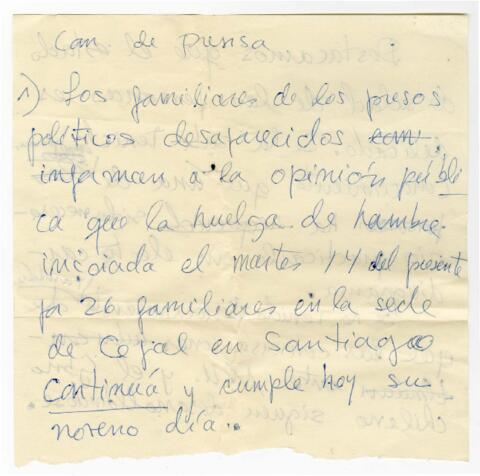 Con de prensa
1) Los familiares de los presos
políticos desaparecidos
informan a la opinión públi
ca que la huelga de hambre
iniciada el martes 14 del presente
26 familiares en la sede
de Cepal en Santiago
continuá y cumple hoy su
noveno día..